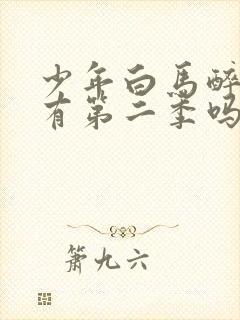 少年白馬醉
有第二季吗
箫九六